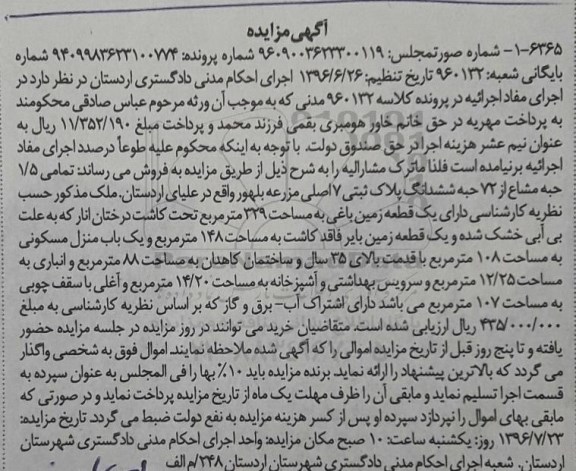 آگهی مزایده
۶۳۶۵-۱- شماره صورتمجلس: ۹۶۰۹۰۰۳۶۲۳۳۰۰۱۱۹ شماره پرونده: ۹۴۰۹۹۸۳۶۲۳۱۰۰۷۷۴ شماره
بایگانی شعبه: ۹۶۰۱۳۲ تاریخ تنظیم: ۱۳۹۶/۶/۲۶ اجرای احکام مدنی دادگستری اردستان در نظر دارد در
اجرای مفاد اجرائیه در پرونده کلاسه ۹۶۰۱۳۲ مدنی که به موجب آن ورثه مرحوم عباس صادقی محکومند
به پرداخت مهریه در حق خانم خاور هومبری بقمی فرزند محمد و پرداخت مبلغ ۱۱/۳۵۲/۱۹۰ ریال به
عنوان نیم عشر هزینه اجرا در حق صندوق دولت. با توجه به اینکه محکوم علیه طوعاً درصدد اجرای مفاد
اجرائیه برنیامده است فلذا ماترک مشارالیه را به شرح ذیل از طریق مزایده به فروش می رساند: تمامی ۱/۵
حبه مشاع از ۷۲ حبه ششدانگ پلاک ثبتی ۷ اصلی مزرعه بلهور واقع در علیای اردستان. ملک مذکور حسب
نظریه کارشناسی دارای یک قطعه زمین باغی به مساحت ۳۲۹ مترمربع تحت کاشت درختان انار که به علت
بی آبی خشک شده و یک قطعه زمین بایر فاقد کاشت به مساحت ۱۴۸ مترمربع و یک باب منزل مسکونی
به مساحت ۱۰۸ مترمربع با قدمت بالای ۳۵ سال و ساختمان کاهدان به مساحت ۸۸ مترمربع و انباری به
مساحت ۱۲/۲۵ مترمربع و سرویس بهداشتی و آشپزخانه به مساحت ۱۴/۲۰ مترمربع و آغلی با سقف چوبی
به مساحت ۱۰۷ مترمربع می باشد دارای اشتراک آب- برق و گاز که بر اساس نظریه کارشناسی به مبلغ
۴۳۵/۰۰۰/۰۰۰ ریال ارزیابی شده است. متقاضیان خرید می توانند در روز مزایده در جلسه مزایده حضور
یافته و تا پنج روز قبل از تاریخ مزایده اموالی را که آگهی شده ملاحظه نمایند. اموال فوق به شخصی واگذار
می گردد که بالاترین پیشنهاد را ارائه نماید. برنده مزایده باید ۱۰٪ بها را فی المجلس به عنوان سپرده به
قسمت اجرا تسلیم نماید و مابقی آن را ظرف مهلت یک ماه از تاریخ مزایده پرداخت نماید و در صورتی که
مابقی بهای اموال را نپردازد سپرده او پس از کسر هزینه مزایده به نفع دولت ضبط می گردد. تاریخ مزایده:
۱۳۹۶/۷/۲۳ روز: یکشنبه ساعت: ۱۰ صبح مکان مزایده: واحد اجرای احکام مدنی دادگستری شهرستان
اردستان. شعبه اجرای احکام مدنی دادگستری شهرستان اردستان ۲۴۸/م الف